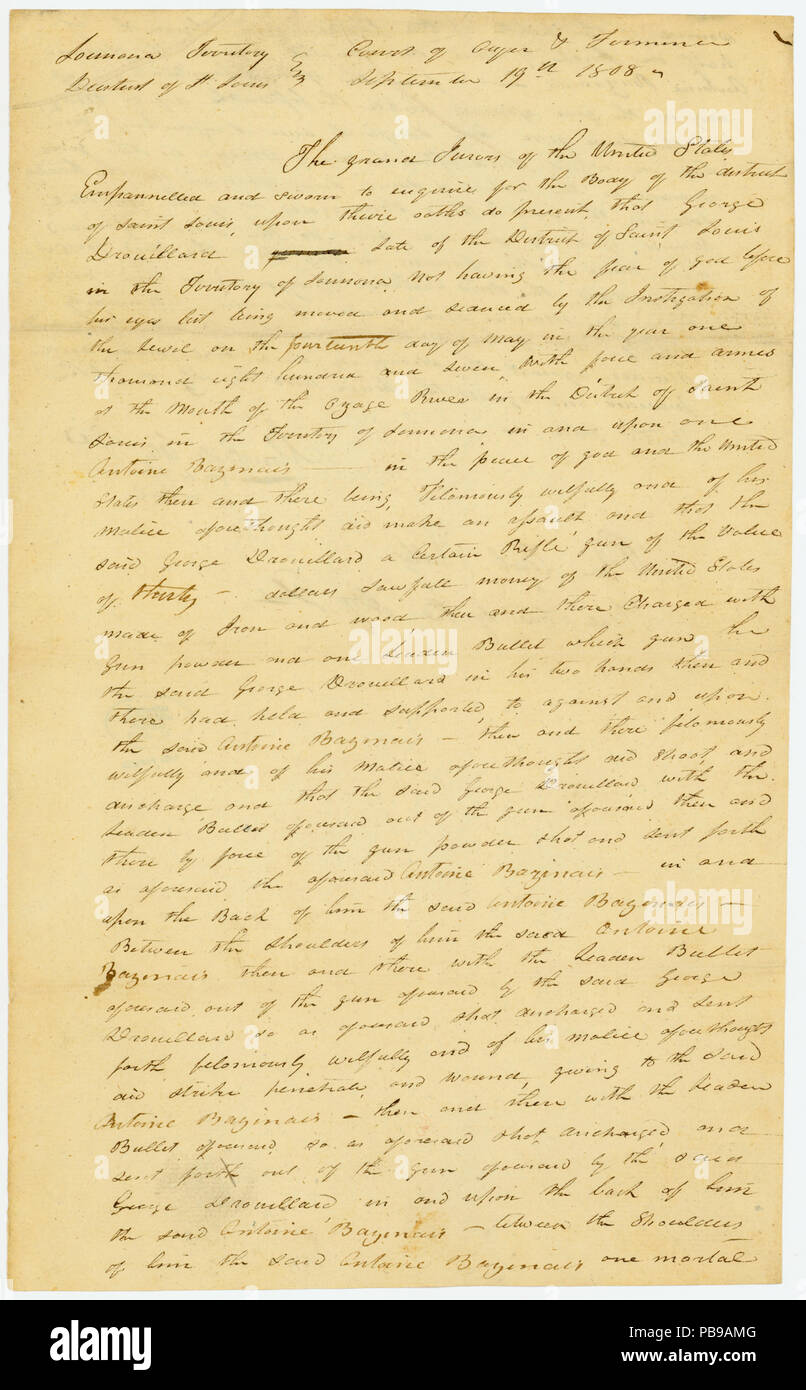 Louisiana Territory } Court of Oyer & Terminer
District of St Louis } September 19th 1808
The grand Jurors of the United States
Empannelled and sworn to enquire for the Body of the district
of Saint Louis, upon theire oaths do present, that George
Drouillard late of the District of Saint Louis
in the Territory of Louisiana, Not having the fear of god before
his eyes but being moved and seduced by the Instigation of
the Devel on the fourteenth day of May in the year one
thousand eight hundred and seven, with force and armes
at the Mouth of the Ozage River in the District of Saint
Louis in the Territory of Louisiana in and upon one
Antoine Bazinais in the peace of god and the United
States then and there being, Feloniously wilfully and of his
Malice aforethought did make an assault and that the
said George Drouillard a Certain Rifle gun of the Value
of thirty - dollars Lawfull money of the United States
made of Iron and wood then and there Charged with
Gun powder and one Leaden Bullet which gun he
the said George Drouillard in his two hands then and
there had held and supported, to against and upon
the said Antoine Bazinais - then and there feloniously
wilfully and of his Malice aforethought did Shoot and
discharge and that the said George Drouillard with the
Leaden Bullet aforesaid out of the gun aforesaid then and
there by force of the gun powder shot and sent forth
as aforesaid the aforesaid Antoine Bazinais - in and
upon the Back of him the said Antoine Bazinais -
Between the shoulders of him the said Antoine
Bazinais then and there with the Leaden Bullet
aforesaid out of the gun aforesaid by the said George
Drouillard so as aforesaid shot discharged and sent
forth feloniously wilfully and of his malice aforethought
did strike penetrate and wound, giving to the said
Antoine Bazinais - then and there with the Leaden
Bullet aforesaid so as aforesaid shot, discharged and
sent forth out of the gun aforesaid by the said
George Drouillard in and upon the back of him
the said Antoine Bazinais - between the Shoulders
of him the said Antoine Bazinais one mortal
alamy
Image ID: PB9AMG
www.alamy.com